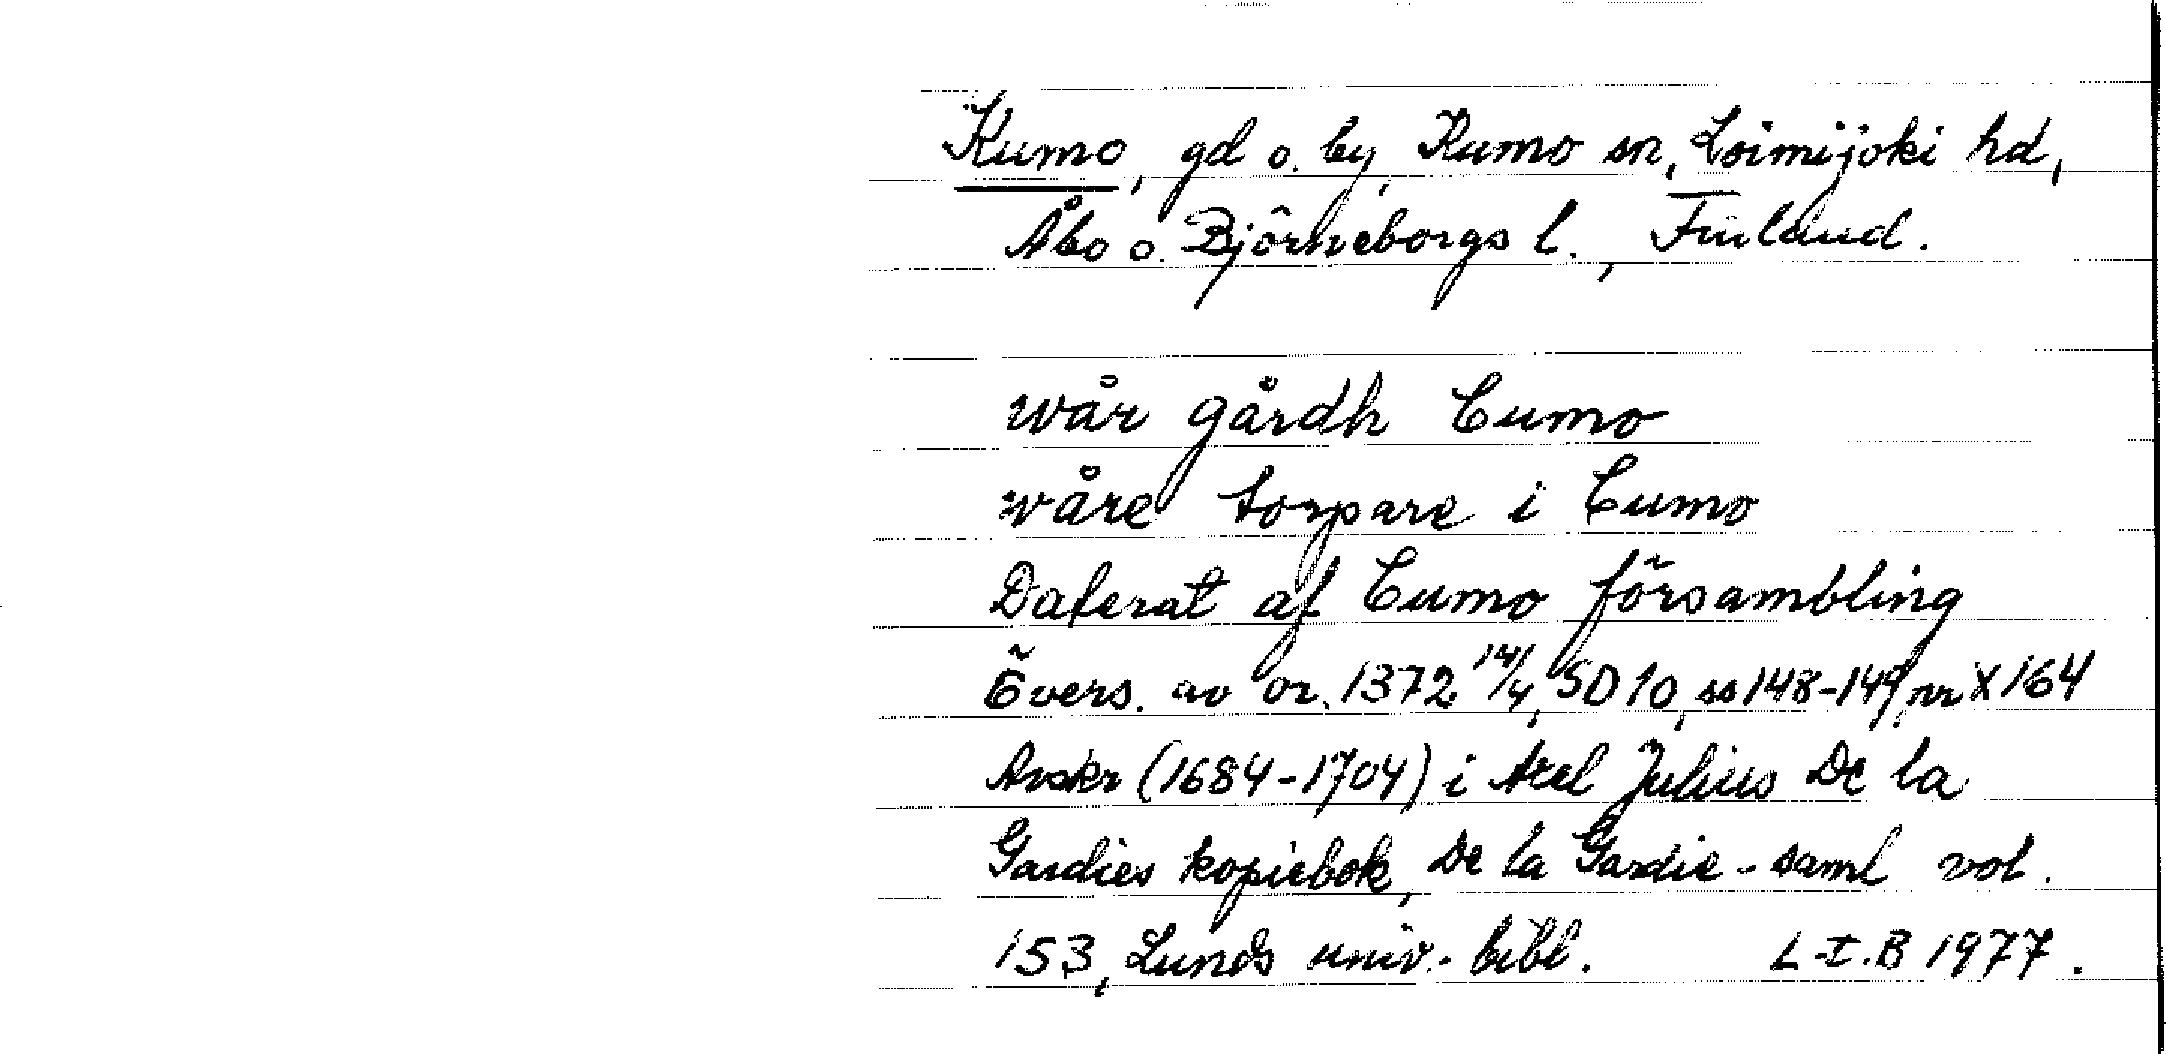 Kumo, gd o. by, Kumo sn, Loimijoki hd,
Åbo o. Björneborgs l., Finland.
wår gårdh Cumo
wåre torpare i Cumo
Daterat af Cumo försambling
Övers. av or. 1372 14/4, SD 10, ss 148-149, nr X 164
Avskr (1684-1704) i Axel Julius De la
Gardies kopiebok, De la Gardie-saml vol.
153, Lunds univ.-bibl. L-I.B 1977.